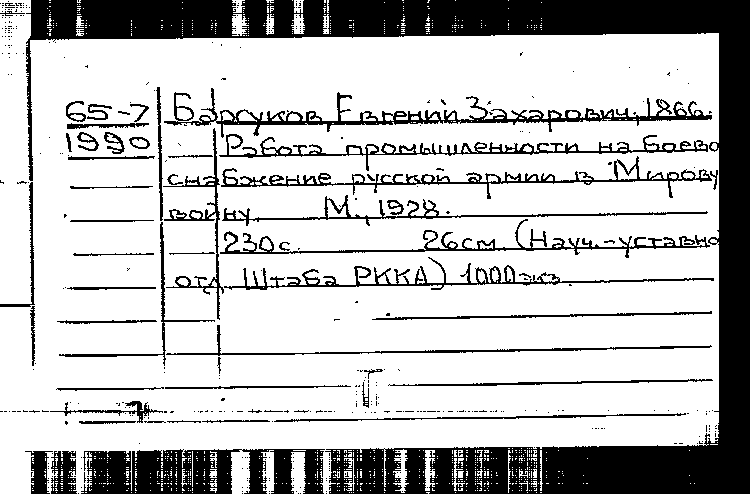 65-7 Барсуков, Евгений Захарович, 1866.
1990 Работа промышленности на боево
снабжение русской армии в Мирову
войну. М., 1928.
230 с. 26 см. (Науч.-уставно
отд. Штаба РККА) 1000 экз.